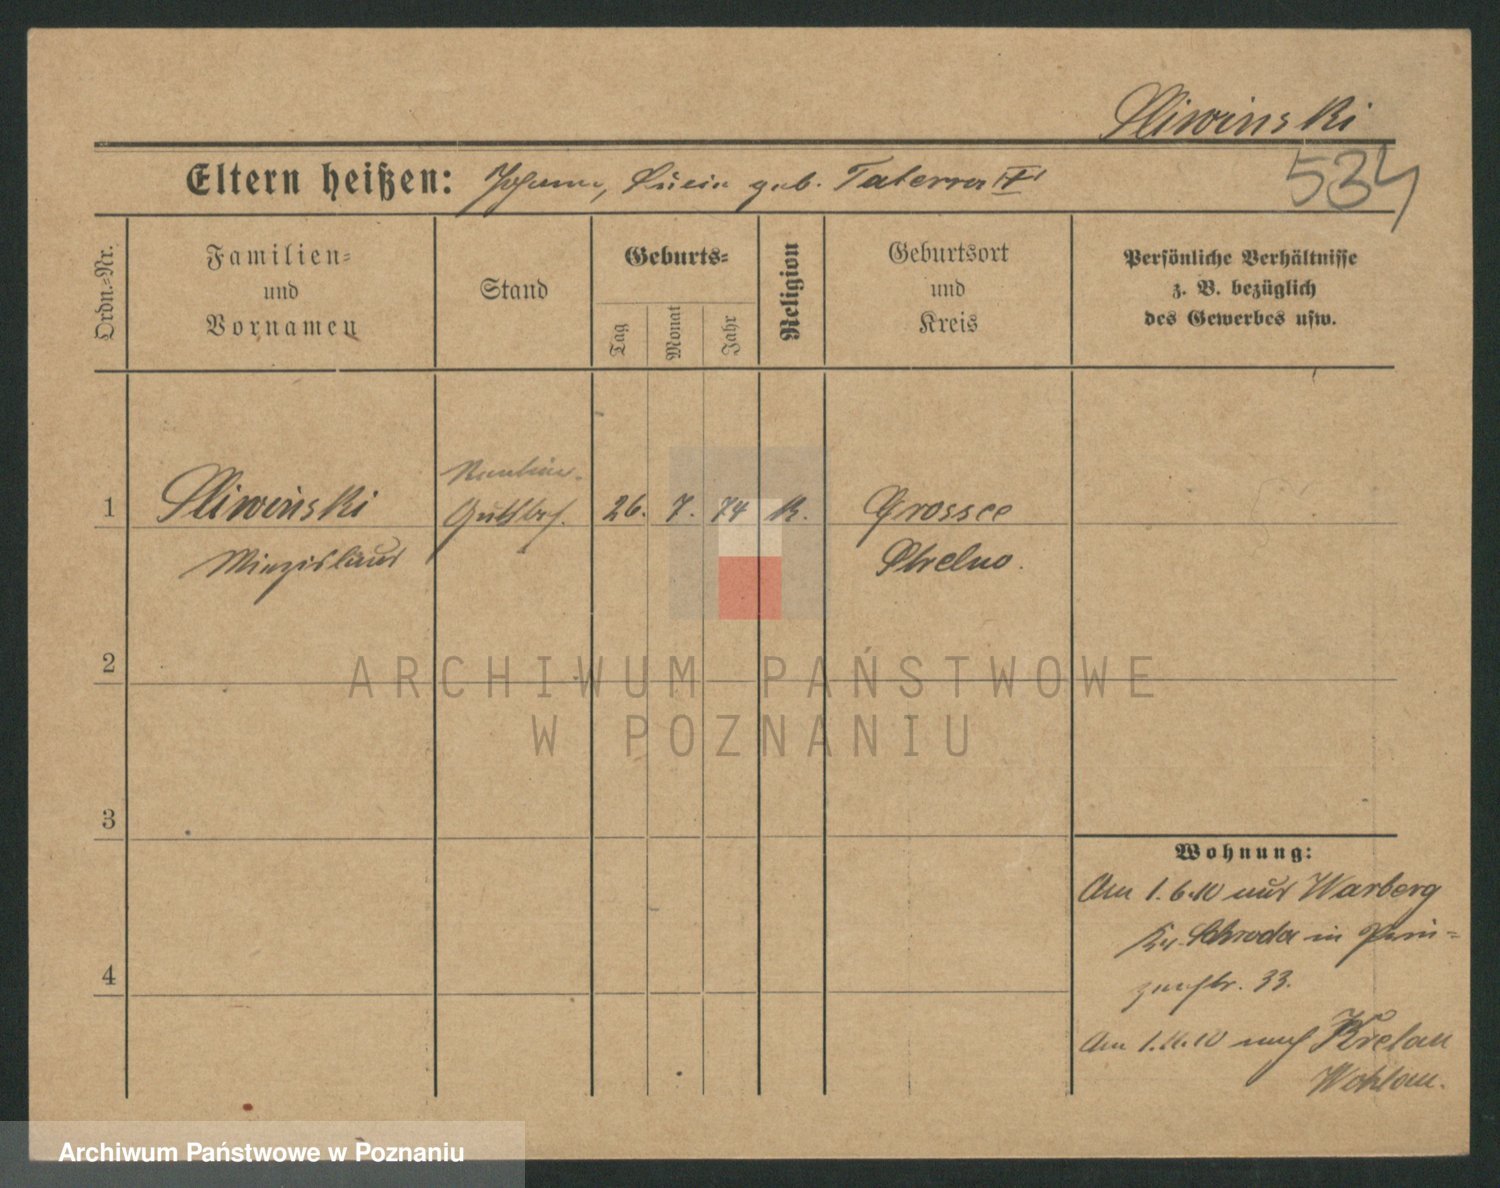 Sliwinski
534
Eltern heißen: Johann, Lucia geb. Taterra
Ordn.=Nr.
Familien=
und
Vornamen
Stand
Geburts=
Tag
Monat
Jahr
Religion
Geburtsort
und
Kreis
Persönliche Verhältnisse
z. B. bezüglich
des Gewerbes usw.
1
Sliwinski
Gutsbes.
26. 7. 74 K.
Grossee
Miezislaus
Strelno.
2
ARCHIWUM PAŃSTWOWE
W POZNANIU
3
4
Wohnung:
Am 1.6.10 aus Warberg
Kr. Schroda in Prin=
zenstr. 33.
Am 1.11.10 nach Krelau
Wohlau.
Archiwum Państwowe w Poznaniu